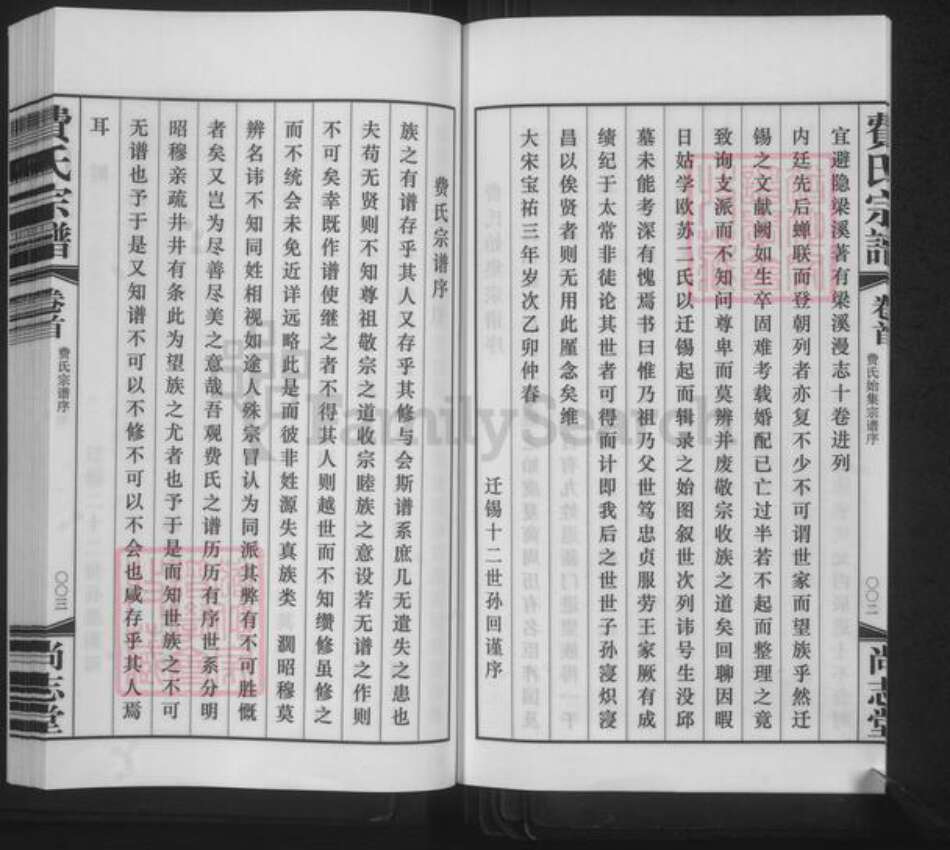 費氏宗譜
卷首
费氏始集宗谱序
〇〇二
尚志堂
宜避隐梁溪著有梁溪漫志十卷进列
内廷先后蝉联而登朝列者亦复不少不可谓世家而望族乎然迁
锡之文献阙如生卒固难考载婚配已亡过半若不起而整理之竟
致询支派而不知问尊卑而莫辨并废敬宗收族之道矣回聊因暇
日姑学欧苏二氏以迁锡起而辑录之始图叙世次列讳号生没邱
墓未能考深有愧焉书曰惟乃祖乃父世笃忠贞服劳王家厥有成
绩纪于太常非徒论其世者可得而计即我后之世世子孙寖炽寖
昌以俟贤者则无用此厪念矣维
大宋宝祐三年岁次乙卯仲春
迁锡十二世孙回谨序
费氏宗谱序
族之有谱存乎其人又存乎其修与会斯谱系庶几无遗失之患也
夫苟无贤则不知尊祖敬宗之道收宗睦族之意设若无谱之作则
不可矣幸既作谱使继之者不得其人则越世而不知缵修虽修之
而不统会未免近详远略此是而彼非姓源失真族类 溷昭穆莫
辨名讳不知同姓相视如途人殊宗冒认为同派其弊有不可胜慨
者矣又岂为尽善尽美之意哉吾观费氏之谱历历有序世系分明
昭穆亲疏井井有条此为望族之尤者也予于是而知世族之不可
无谱也予于是又知谱不可以不修不可以不会也咸存乎其人焉
耳
費氏宗譜
卷首
费氏宗谱序
〇〇三
尚志堂
FamilySearch